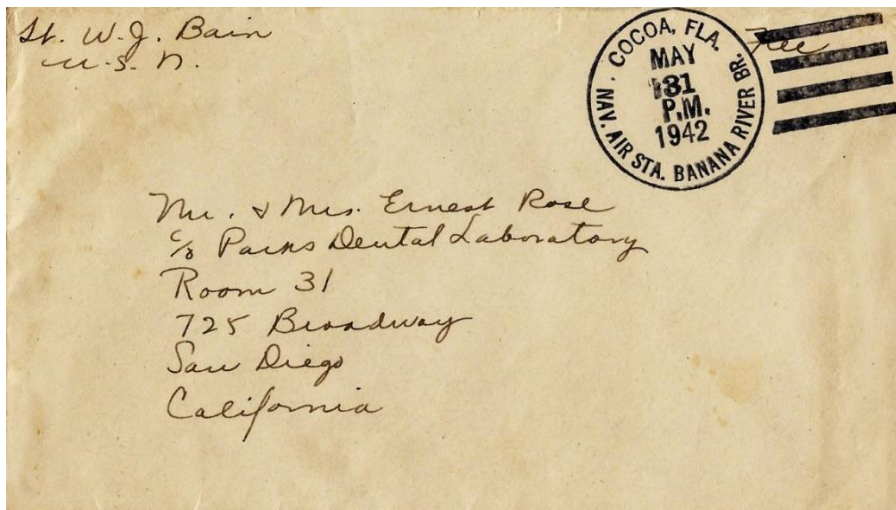 Lt. W.J. Bain
U.S.N.
COCOA, FLA.
MAY
31
P.M.
1942
NAV. AIR STA. BANANA RIVER BR.
Free
Mr. & Mrs. Ernest Rose
c/o Parks Dental Laboratory
Room 31
725 Broadway
San Diego
California